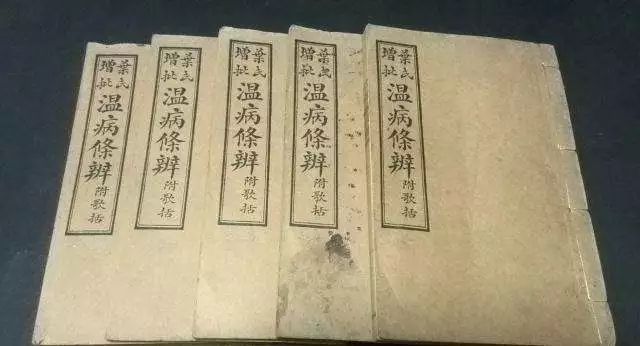 葉氏
增批
温病條辨附歌括
葉氏
增批
温病條辨附歌括
葉氏
增批
温病條辨附歌括
葉氏
增批
温病條辨附歌括
葉氏
增批
温病條辨附歌括